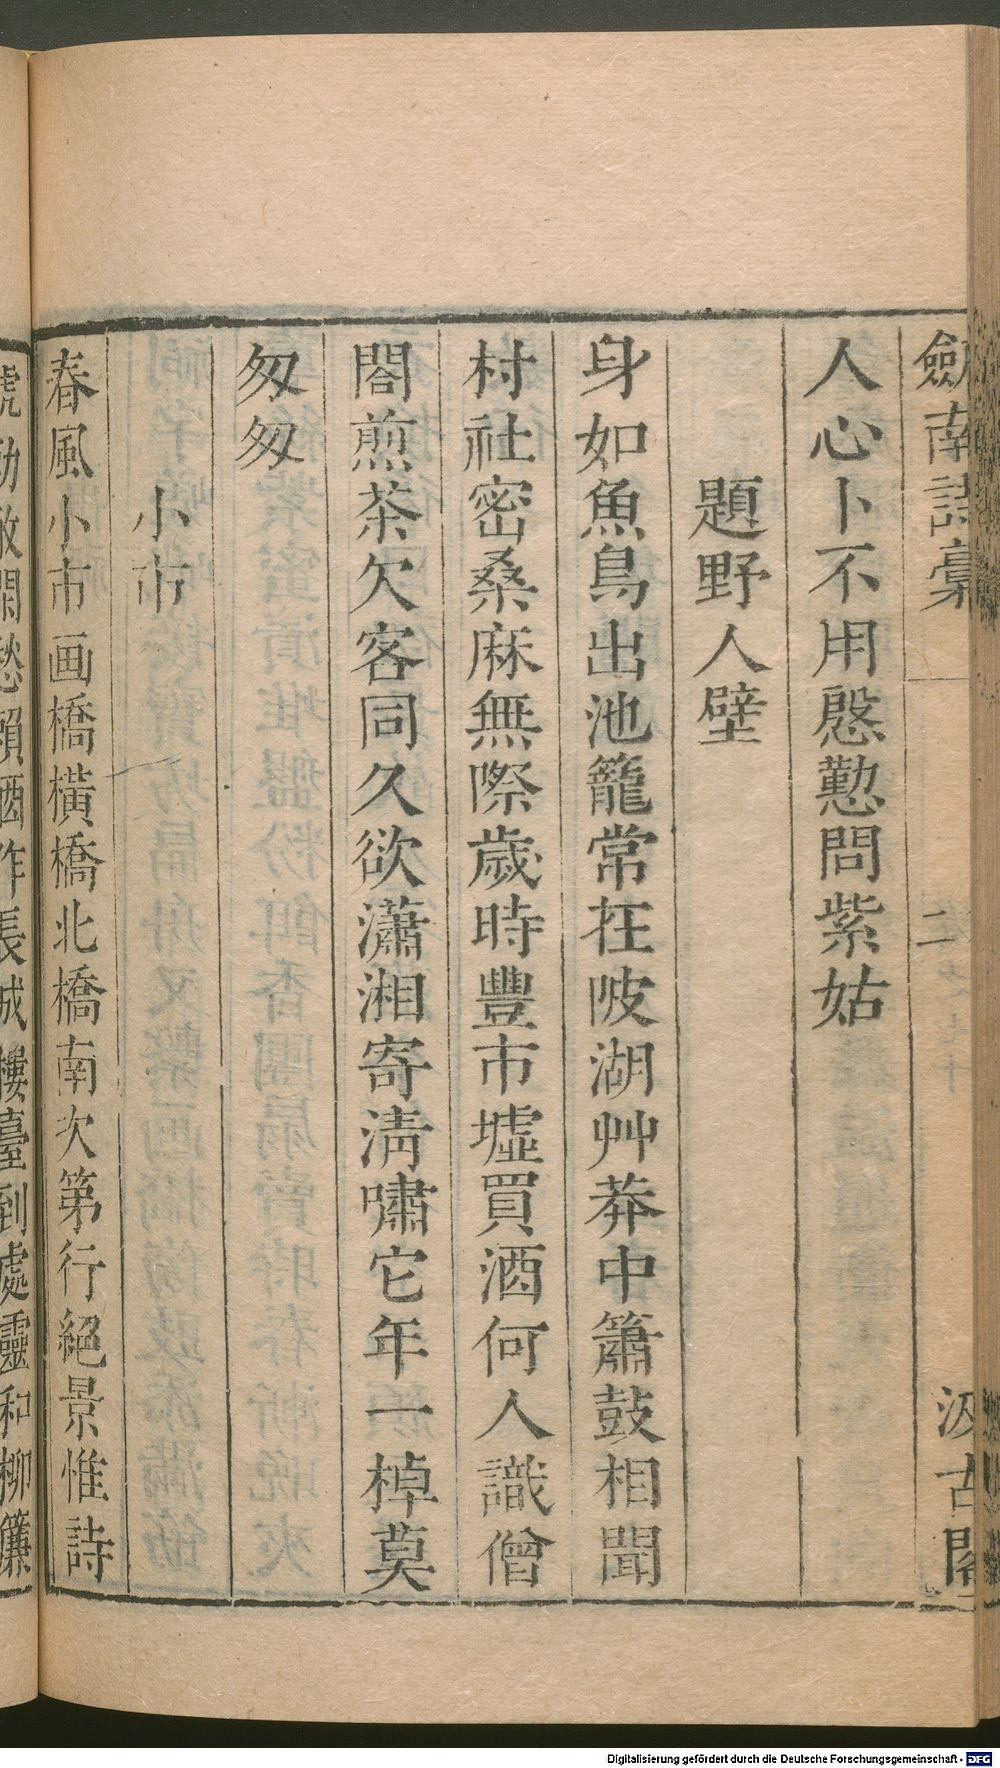 劍南詩稾 二 汲古閣
人心卜不用慇懃問紫姑
題野人壁
身如魚鳥出池籠常在陂湖艸莽中簫鼓相聞
村社密桑麻無際歲時豐市墟買酒何人識僧
閤煎茶欠客同久欲瀟湘寄淸嘯它年一棹莫
匆匆
小市
春風小市画橋橫橋北橋南次第行絕景惟詩
號勍敵閑愁賴酒作長城樓臺到處靈和柳簾
Digitalisierung gefördert durch die Deutsche Forschungsgemeinschaft - DFG